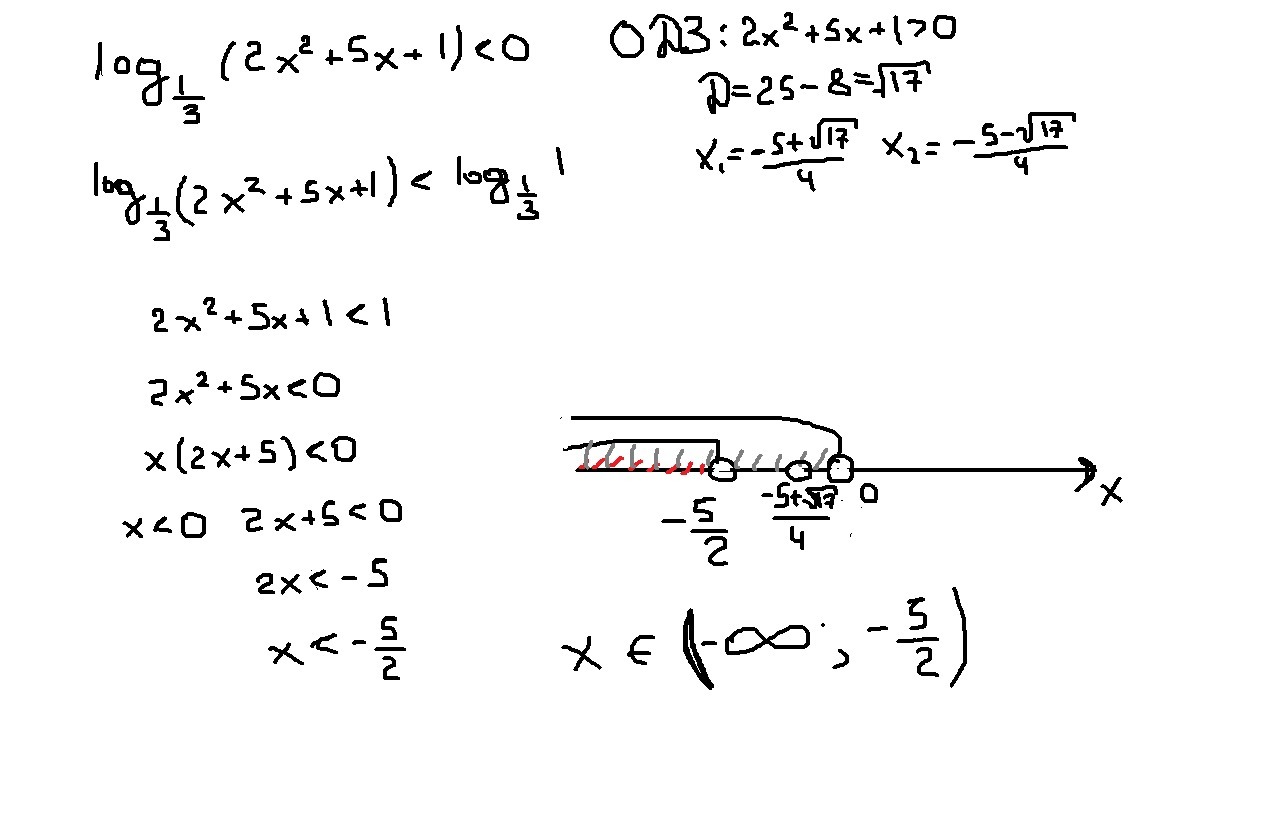 log_{1/3} (2x²+5x+1)<0
ОДЗ: 2x²+5x+1>0
D=25-8=√17
x₁=-5+√17/4 x₂=-5-√17/4
log_{1/3}(2x²+5x+1) < log_{1/3} 1
2x²+5x+1<1
2x²+5x<0
x(2x+5)<0
x<0 2x+5<0
2x<-5
x<-5/2
-5/2 -5+√17/4 0 x
x ∈ (-∞; -5/2)